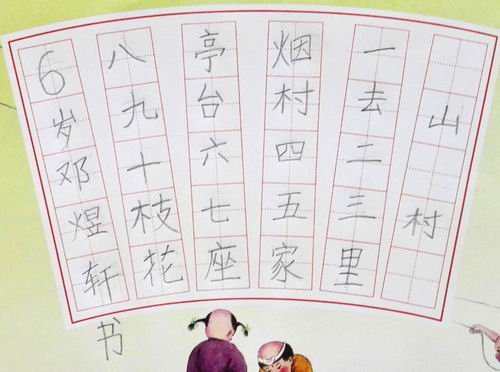 山村
一去二三里
烟村四五家
亭台六七座
八九十枝花
6岁邓煜轩书